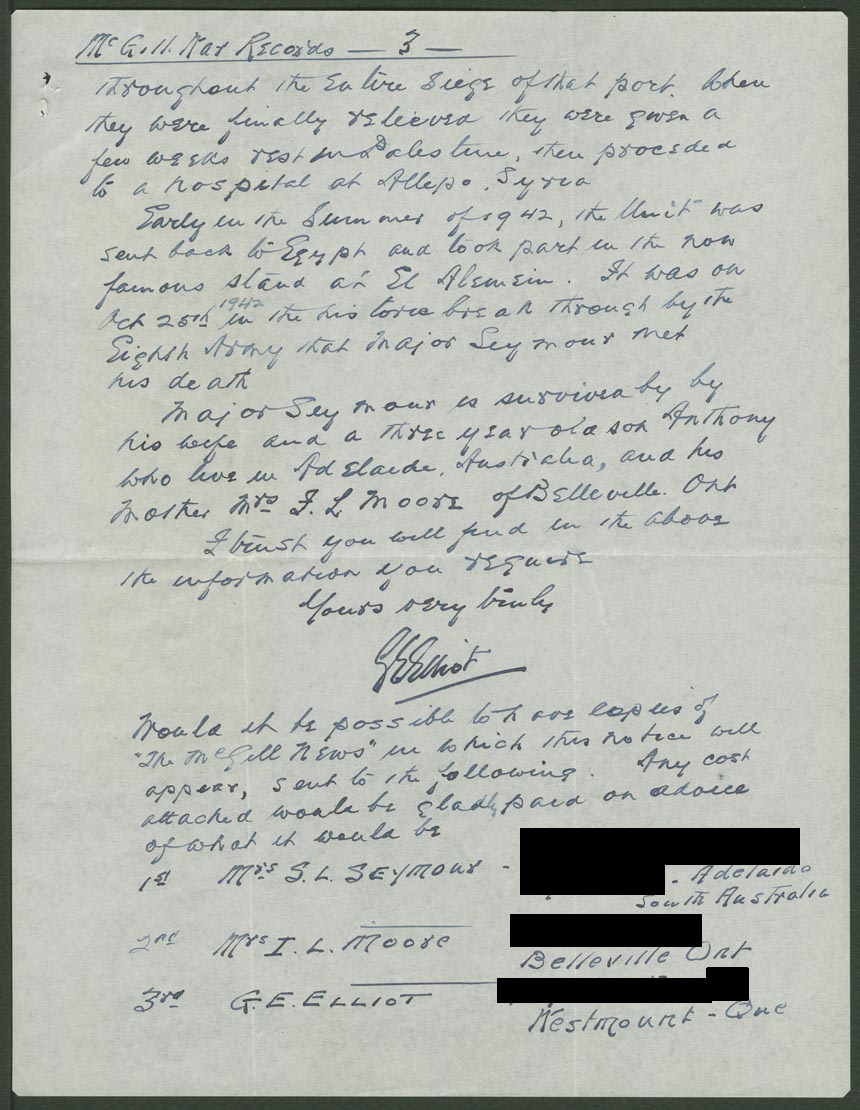 McGill War Records — 3 —
throughout the Entire Siege of that port. When
they were finally relieved they were given a
few weeks rest in Palestine, then proceded
to a hospital at Allepo, Syria
Early in the Summer of 1942, the Unit was
sent back to Egypt and took part in the now
famous stand at El Alemein. It was on
Oct 25th 1942 in the historic break through by the
Eighth Army that Major Seymour met
his death
Major Seymour is survived by by
his wife and a three year old son Anthony
who live in Adelaide, Australia, and his
Mother Mrs I. L. Moore of Belleville. Ont
I trust you will find in the above
the information you require
Yours very truly
G E Elliot
Would it be possible to have copies of
"The McGill News" in which this notice will
appear, sent to the following. Any cost
attached would be gladly paid on advice
of what it would be
1st Mrs S. L. Seymour - - Adelaide
South Australia
2nd Mrs I. L. Moore
Belleville Ont
3rd G. E. Elliot
Westmount - Que